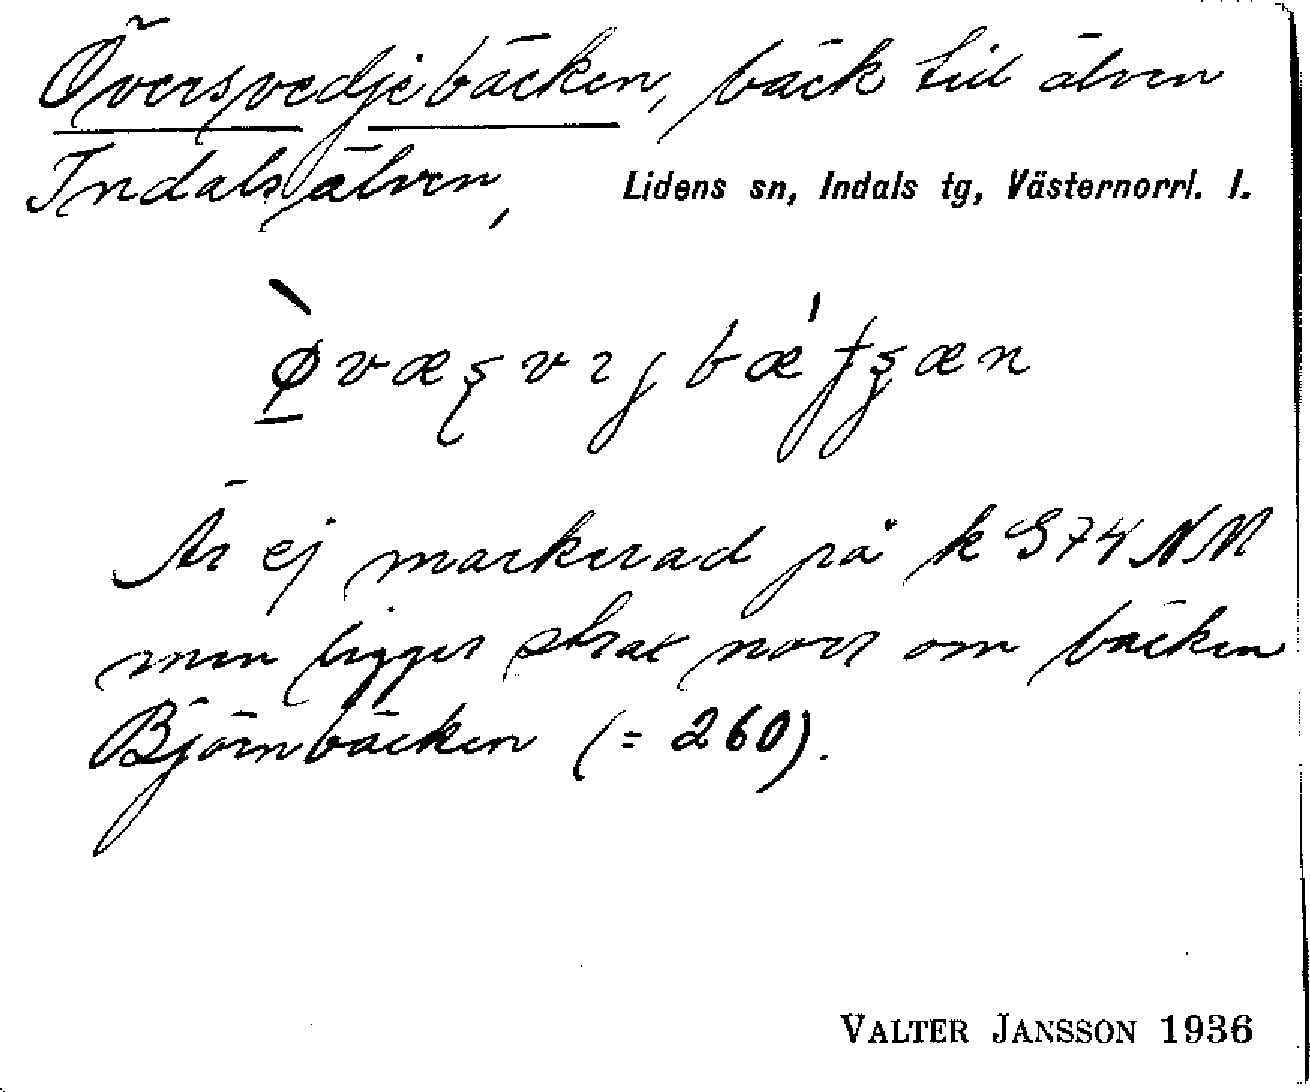 Översvedjebäcken, bäck till älven
Indalsälven, Lidens sn, Indals tg, Västernorrl. l.
Är ej markerad på k G74 NN
men ligger strax norr om bäcken
Björnbäcken (= 260).
VALTER JANSSON 1936